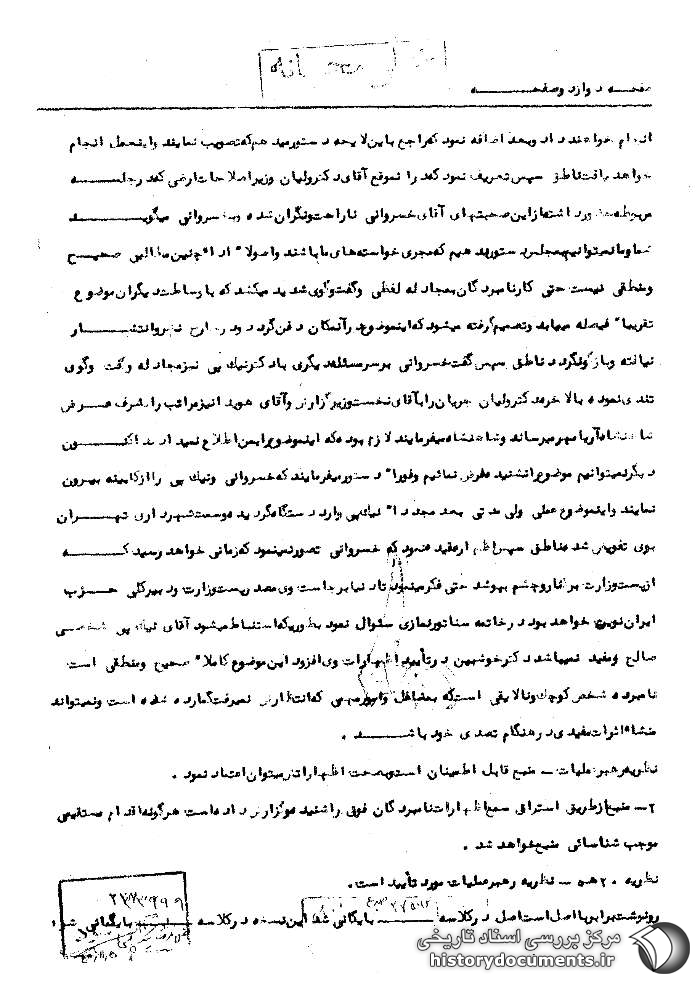 محرمانه
صفحه دوازد وصفحه
انجام خواهند داد وبعد اضافه نمود که راجع باین لایحه دستور میدهم که تصویب نمایند واینعمل انجام
خواهد یافت ناطق سپس تعریف نمود که در آنموقع آقای دکتر ولیان وزیر اصلاحات ارضی که در جلسه
مربوطه حضور داشته از این صحبتهای آقای خسروانی ناراحت ونگران شده وبه خسروانی میگوید
شما ومانمیتوانیم بمجلس دستور بدهیم که مجری خواسته های ما باشند واصولا" ادا" چنین مطالبی صحیح
ومنطقی نیست حتی کار نامبردگان بمجادله لفظی وگفتگوی شدید میکشد که با وساطت دیگران موضوع
تقریبا" فیصله مییابد وتصمیم گرفته میشود که اینموضوع در آنمکان دفن گردد ودر خارج نیز انتشار
نیافته وبازگو نگردد ناطق سپس گفت خسروانی بر سر مسئله دیگری با دکتر نیک پی نیز مجادله وگفت وگوی
تندی نموده بالاخره دکتر ولیان جریان را بآقای نخست وزیر گزارش وآقای هویدا نیز مراتب را بشرف عرض
شاهنشاه آریامهر میرساند وشاهنشاه میفرمایند لازم بوده که اینموضوع را بمن اطلاع نمیدادند اکنون
دیگر نمیتوانیم موضوع را نشنیده فرض نمائیم وفورا" دستور میفرمایند که خسروانی ونیک پی را از کابینه بیرون
نمایند واینموضوع عملی ولی مدتی بعد مجددا" نیک پی وارد دستگاه گردید وپست شهرداری تهران
بوی تفویض شد ناطق سپس اظهار عقیده نمود که خسروانی تصور نمینمود که زمانی خواهد رسید که
از پست وزارت برکنار وچشم بپوشد حتی فکر مینمود تا دنیا برجاست وی مصدر پست وزارت ودبیرکلی حزب
ایران نوین خواهد بود در خاتمه سناتور نمازی سئوال نمود بطوریکه استنباط میشود آقای نیک پی شخصی
صالح ومفید نمیباشد دکتر خوشبین در تأیید اظهارات وی افزود این موضوع کاملا" صحیح ومنطقی است
نامبرده شخص کوچک ونالایقی است که بمشاغل وامور مهمی که انتظارش نمیرفت گمارده شده است ونمیتواند
منشاء اثرات مفیدی در هنگام تصدی خود باشد .
نظریه رهبر عملیات ـ منبع قابل اطمینان است وبصحت اظهاراتش میتوان اعتماد نمود .
۲ـ منبع از طریق استراق سمع اظهارات نامبردگان فوق را شنیده وگزارش داده است هرگونه اقدام مستقیمی
موجب شناسائی منبع خواهد شد .
نظریه ۲۰ هـ ۵ ـ نظریه رهبر عملیات مورد تأیید است .
رونوشت برابر با اصل است اصل در کلاسه بایگانی شد این نسخه در کلاسه بایگانی شود
مرکز بررسی اسناد تاریخی
historydocuments.ir